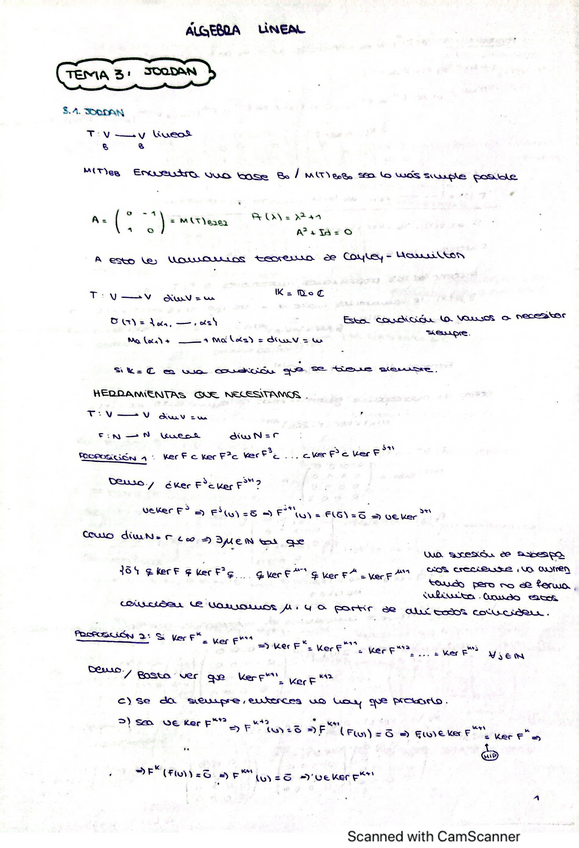 ÁLGEBRA LINEAL
TEMA 3: JORDAN
3.1. JORDAN
T: V → V lineal
B B
M(T)BB Encuentra una base B₀ / M(T)B₀B₀ sea lo más simple posible
A = ( 0 -1 ; 1 0 ) = M(T)B₂B₂ PA(λ) = λ²+1
A² + Id = 0
A esto le llamamos teorema de Cayley-Hamilton
T: V → V dimV = m IK = IR o ℂ
σ(T) = {α₁, —, αs} Esta condición la vamos a necesitar
siempre.
Ma(α₁) + — + Ma(αs) = dimV = m
Si IK = ℂ es una condición que se tiene siempre.
HERRAMIENTAS QUE NECESITAMOS.
T: V → V dimV = m
F: N → N lineal dimN = r
PROPOSICIÓN 1: Ker F ⊂ Ker F² ⊂ Ker F³ ⊂ ... ⊂ Ker Fʲ ⊂ Ker Fʲ⁺¹
Demo/ ¿Ker Fʲ ⊂ Ker Fʲ⁺¹?
u∈Ker Fʲ ⇒ Fʲ(u) = ō ⇒ Fʲ⁺¹(u) = F(ō) = ō ⇒ u∈Ker ʲ⁺¹
Como dimN = r < ∞ ⇒ ∃μ∈IN tal que
una sucesión de subespa
cios creciente, va aumen
tando pero no de forma
infinita. Cuando estos
{ō} ⊊ Ker F ⊊ Ker F² ⊊ ... ⊊ Ker F^μ⁻¹ ⊊ Ker F^μ = Ker F^μ⁺¹
coinciden le llamamos μ, y a partir de ahí todos coinciden.
PROPOSICIÓN 2: Si Ker Fᴷ = Ker Fᴷ⁺¹ ⇒ Ker Fᴷ = Ker Fᴷ⁺¹ = Ker Fᴷ⁺² = ... = Ker Fᴷ⁺ʲ ∀j∈IN
Demo./ Basta ver que Ker Fᴷ⁺¹ = Ker Fᴷ⁺²
⊂) Se da siempre, entonces no hay que probarlo.
⊃) Sea u∈ Ker Fᴷ⁺² ⇒ Fᴷ⁺²(u) = ō ⇒ Fᴷ⁺¹(F(u)) = ō ⇒ F(u) ∈ Ker Fᴷ⁺¹ = Ker Fᴷ ⇒
HIP
⇒ Fᴷ(F(u)) = ō ⇒ Fᴷ⁺¹(u) = ō ⇒ u∈Ker Fᴷ⁺¹
1
Scanned with CamScanner